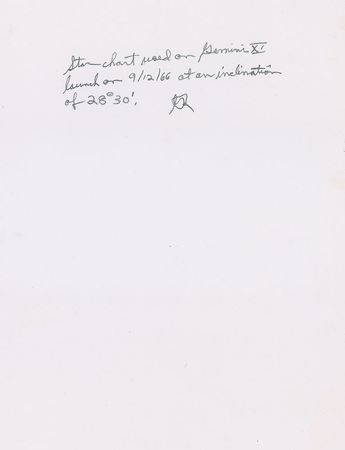 Star chart used on Gemini XI
launch on 9/12/66 at an inclination
of 28°30'.